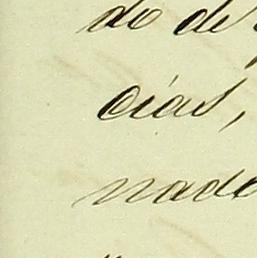 do de
cias,
nade